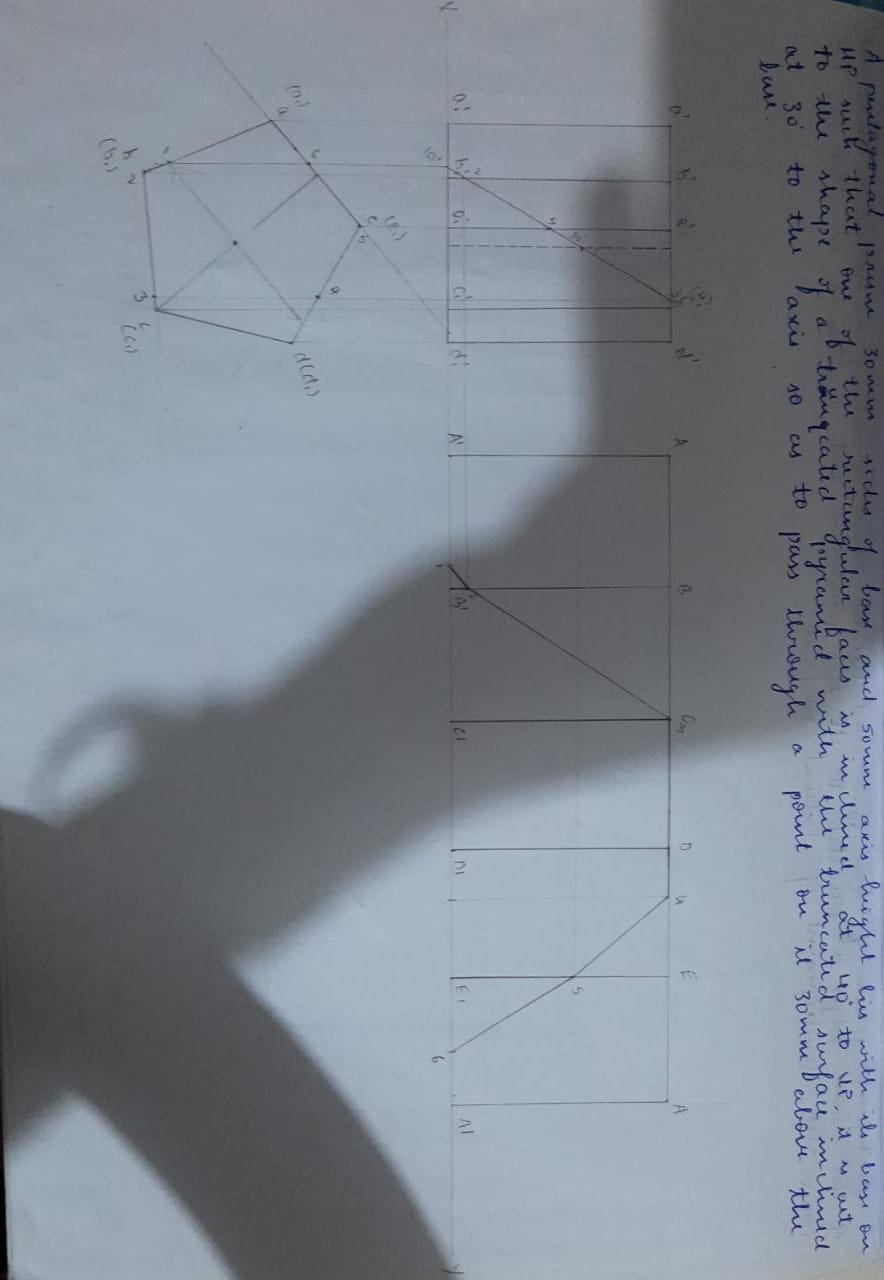 A pentagonal prism 30mm sides of base and 50mm axis height lies with its base on
HP such that one of the rectangular faces is inclined at 40° to VP, it is cut
to the shape of a truncated pyramid with the truncated surface inclined
at 30° to the axis so as to pass through a point on it 30mm above the
base.
a' b' e' c' d'
A B C D 4 E A
5
X a1' b1' c1' d1'
A1 B1 C1 D1 E1 A1 Y
1 6
(e1)
e 5
(a1) a 6 4 d(d1)
1
b 2 3 c
(b1) (c1)